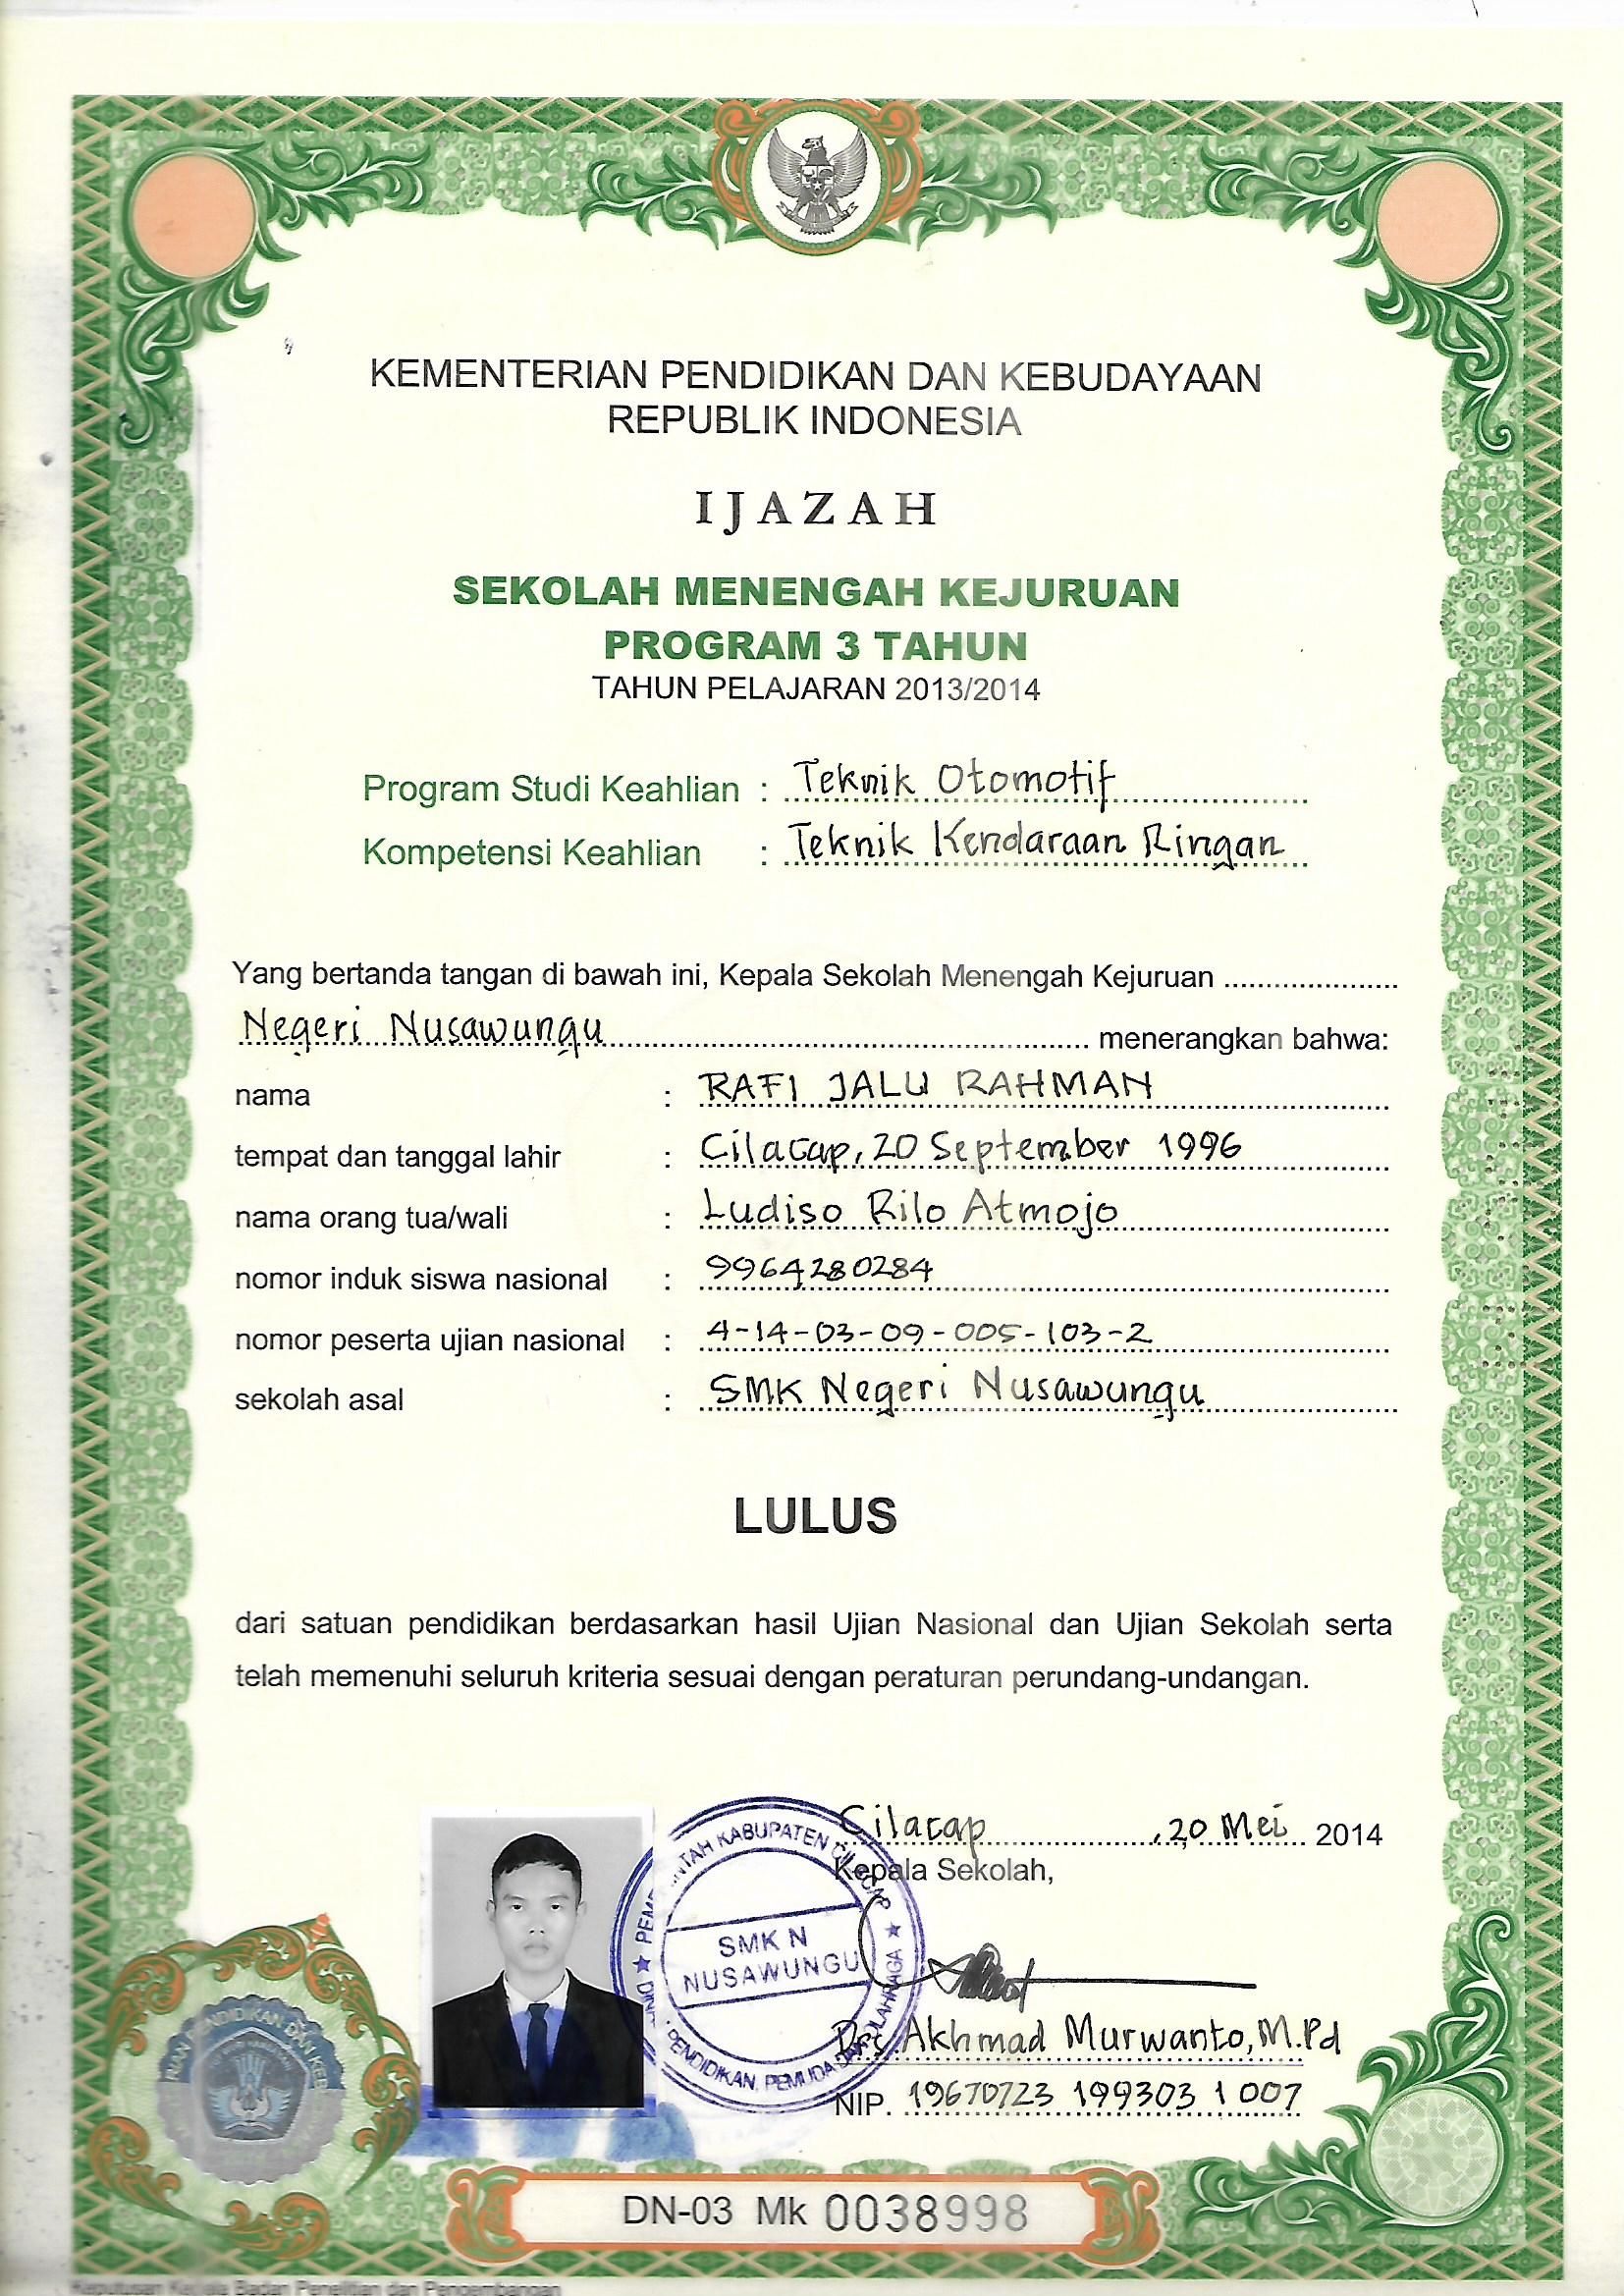 KEMENTERIAN PENDIDIKAN DAN KEBUDAYAAN
REPUBLIK INDONESIA
IJAZAH
SEKOLAH MENENGAH KEJURUAN
PROGRAM 3 TAHUN
TAHUN PELAJARAN 2013/2014
Program Studi Keahlian : Teknik Otomotif
Kompetensi Keahlian : Teknik Kendaraan Ringan
Yang bertanda tangan di bawah ini, Kepala Sekolah Menengah Kejuruan
Negeri Nusawungu menerangkan bahwa:
nama : RAFI JALU RAHMAN
tempat dan tanggal lahir : Cilacap, 20 September 1996
nama orang tua/wali : Ludiso Rilo Atmojo
nomor induk siswa nasional : 9964280284
nomor peserta ujian nasional : 4-14-03-09-005-103-2
sekolah asal : SMK Negeri Nusawungu
LULUS
dari satuan pendidikan berdasarkan hasil Ujian Nasional dan Ujian Sekolah serta
telah memenuhi seluruh kriteria sesuai dengan peraturan perundang-undangan.
Cilacap, 20 Mei 2014
Kepala Sekolah,
KABUPATEN CILACAP
SMK N
NUSAWUNGU
PENDIDIKAN, PEMUDA DAN OLAHRAGA
Drs. Akhmad Murwanto, M.Pd
NIP. 19670723 199303 1 007
DN-03 Mk 0038998